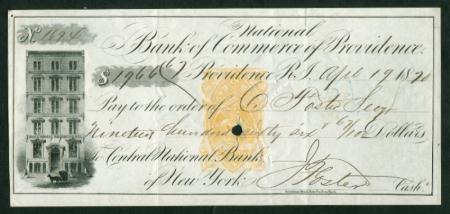 No 1694
National
Bank of Commerce of Providence.
$1966 67/ Providence R.I. Apl 19 1870
Pay to the order of C. Foster
Nineteen hundred sixty six 67/100 Dollars
To Central National Bank,
of New York. J Foster Cash.